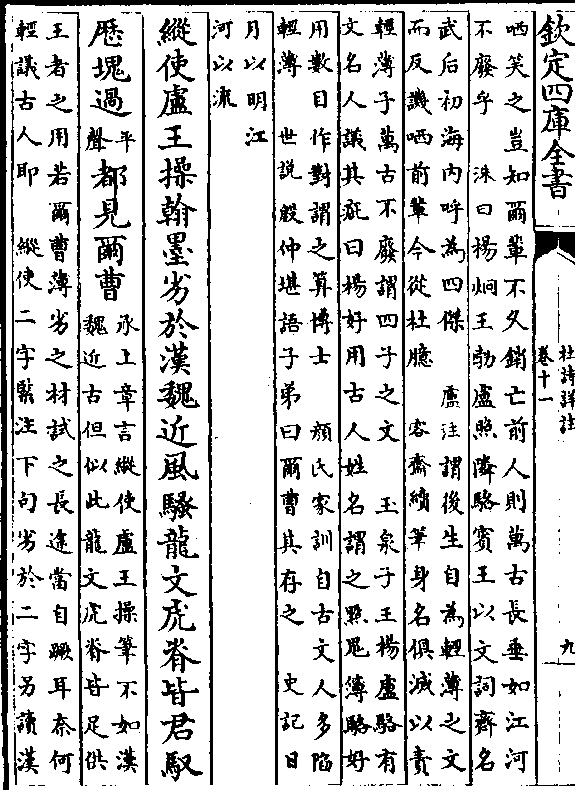 欽定四庫全書
杜詩詳註
卷十一
九
哂笑之豈知爾輩不久銷亡前人則萬古長垂如江河
不廢乎　洙曰楊炯王勃盧照隣駱賓王以文詞齊名
武后初海内呼為四傑　盧注謂後生自為輕薄之文
而反譏哂前輩今從杜臆　容齋續筆身名俱滅以責
輕薄子萬古不廢謂四子之文　玉泉子王楊盧駱有
文名人議其疵曰楊好用古人姓名謂之點鬼簿駱好
用數目作對謂之算博士　顔氏家訓自古文人多陷
輕薄　世説殷仲堪語子弟曰爾曹其存之　史記日
月以明江
河以流
縱使盧王操翰墨劣於漢魏近風騷龍文虎脊皆君馭
歷塊過平聲都見爾曹承上章言縱使盧王操筆不如漢
魏近古但似此龍文虎脊皆足供
王者之用若爾曹薄劣之材試之長途當自蹶耳奈何
輕議古人耶　縱使二字緊注下句劣於二字另讀漢